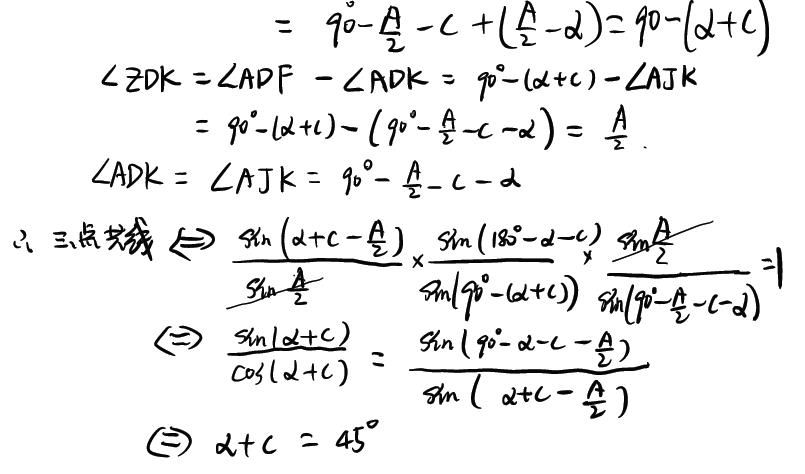 = 90° - A/2 - C + (A/2 - α) = 90 - (α + C)
∠ZDK = ∠ADF - ∠ADK = 90° - (α + C) - ∠AJK
= 90° - (α + C) - (90° - A/2 - C - α) = A/2 .
∠ADK = ∠AJK = 90° - A/2 - C - α
∴ 三点共线 ⟺ sin(α + C - A/2) / sin A/2 × sin(180° - α - C) / sin(90° - (α + C)) × sin A/2 / sin(90° - A/2 - C - α) = 1
⟺ sin(α + C) / cos(α + C) = sin(90° - α - C - A/2) / sin(α + C - A/2)
⟺ α + C = 45°